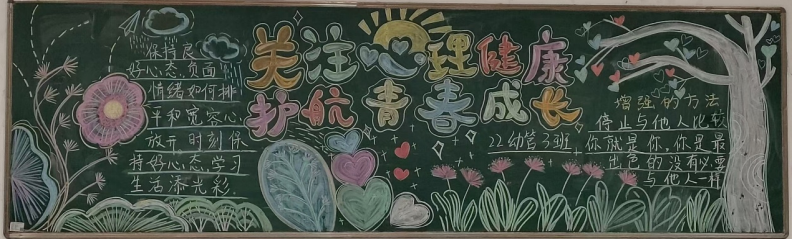 保持良
好心态,负面
情绪如何排
平和宽容心
放亓时刻保
持好心态,学习
生活添光彩.
关注心理健康
护航青春成长
22幼管3班
增强的方法
停止与他人比较
你就是你,你是最
出色的没有必要
与他人一样